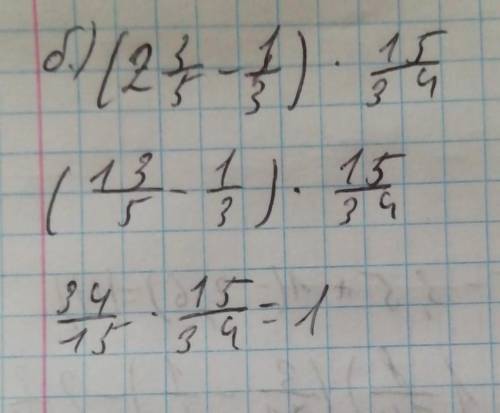 б.) (2 3/5 - 1/3) · 15/34
(13/5 - 1/3) · 15/34
34/15 · 15/34 = 1